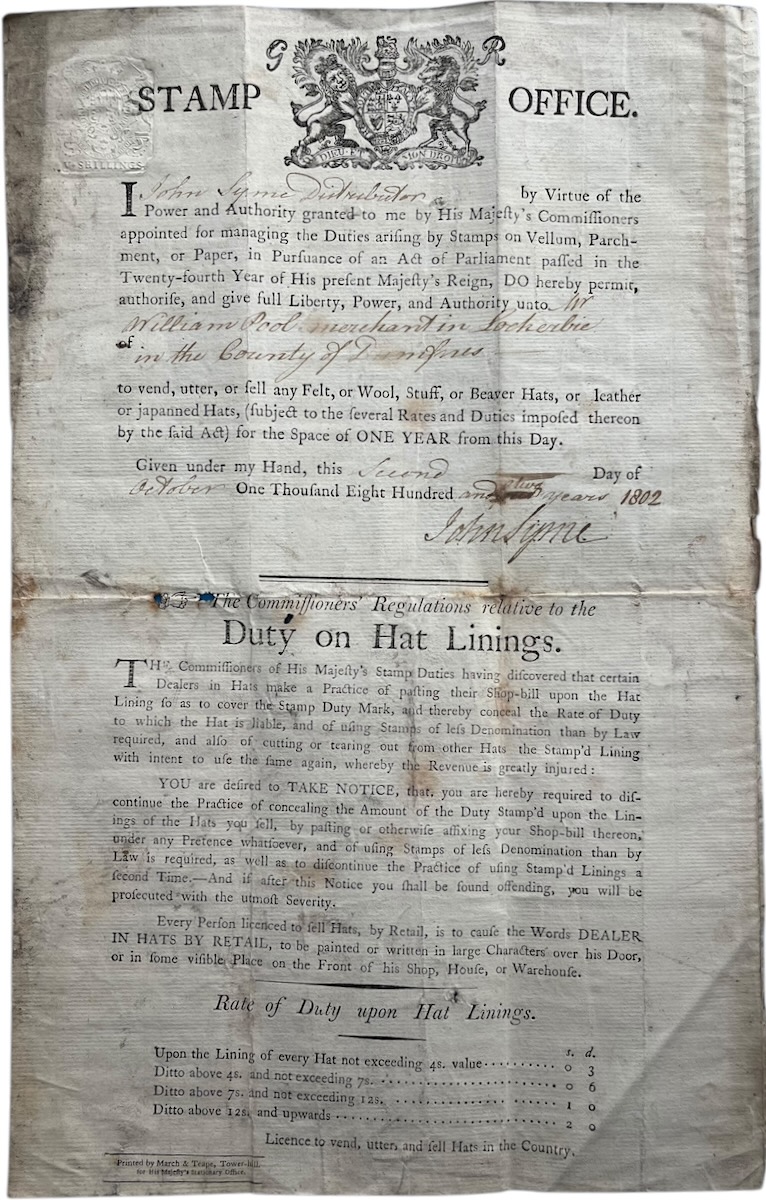 G R
STAMP OFFICE.
DIEU ET MON DROIT
V SHILLINGS
I John Syme Distributor by Virtue of the
Power and Authority granted to me by His Majeſty's Commiſſioners
appointed for managing the Duties ariſing by Stamps on Vellum, Parch-
ment, or Paper, in Purſuance of an Act of Parliament paſſed in the
Twenty-fourth Year of His preſent Majeſty's Reign, DO hereby permit,
authoriſe, and give full Liberty, Power, and Authority unto Mr
William Pool merchant in Lockerbie
of in the County of Dumfries
to vend, utter, or ſell any Felt, or Wool, Stuff, or Beaver Hats, or leather
or japanned Hats, (ſubject to the ſeveral Rates and Duties impoſed thereon
by the ſaid Act) for the Space of ONE YEAR from this Day.
Given under my Hand, this Second Day of
October One Thouſand Eight Hundred and two years 1802
John Syme
☞ The Commiſſioners' Regulations relative to the
Duty on Hat Linings.
THE Commiſſioners of His Majeſty's Stamp Duties having diſcovered that certain
Dealers in Hats make a Practice of paſting their Shop-bill upon the Hat
Lining ſo as to cover the Stamp Duty Mark, and thereby conceal the Rate of Duty
to which the Hat is liable, and of uſing Stamps of leſs Denomination than by Law
required, and alſo of cutting or tearing out from other Hats the Stamp'd Lining
with intent to uſe the ſame again, whereby the Revenue is greatly injured:
YOU are deſired to TAKE NOTICE, that you are hereby required to diſ-
continue the Practice of concealing the Amount of the Duty Stamp'd upon the Lin-
ings of the Hats you ſell, by paſting or otherwiſe affixing your Shop-bill thereon,
under any Pretence whatſoever, and of uſing Stamps of leſs Denomination than by
Law is required, as well as to diſcontinue the Practice of uſing Stamp'd Linings a
ſecond Time.—And if after this Notice you ſhall be found offending, you will be
proſecuted with the utmoſt Severity.
Every Perſon licenced to ſell Hats, by Retail, is to cauſe the Words DEALER
IN HATS BY RETAIL, to be painted or written in large Characters over his Door,
or in ſome viſible Place on the Front of his Shop, Houſe, or Warehouſe.
Rate of Duty upon Hat Linings.
s. d.
Upon the Lining of every Hat not exceeding 4s. value 0 3
Ditto above 4s. and not exceeding 7s. 0 6
Ditto above 7s. and not exceeding 12s. 1 0
Ditto above 12s. and upwards 2 0
Licence to vend, utter, and ſell Hats in the Country.
Printed by March & Teape, Tower-hill,
for His Majeſty's Stationary Office.